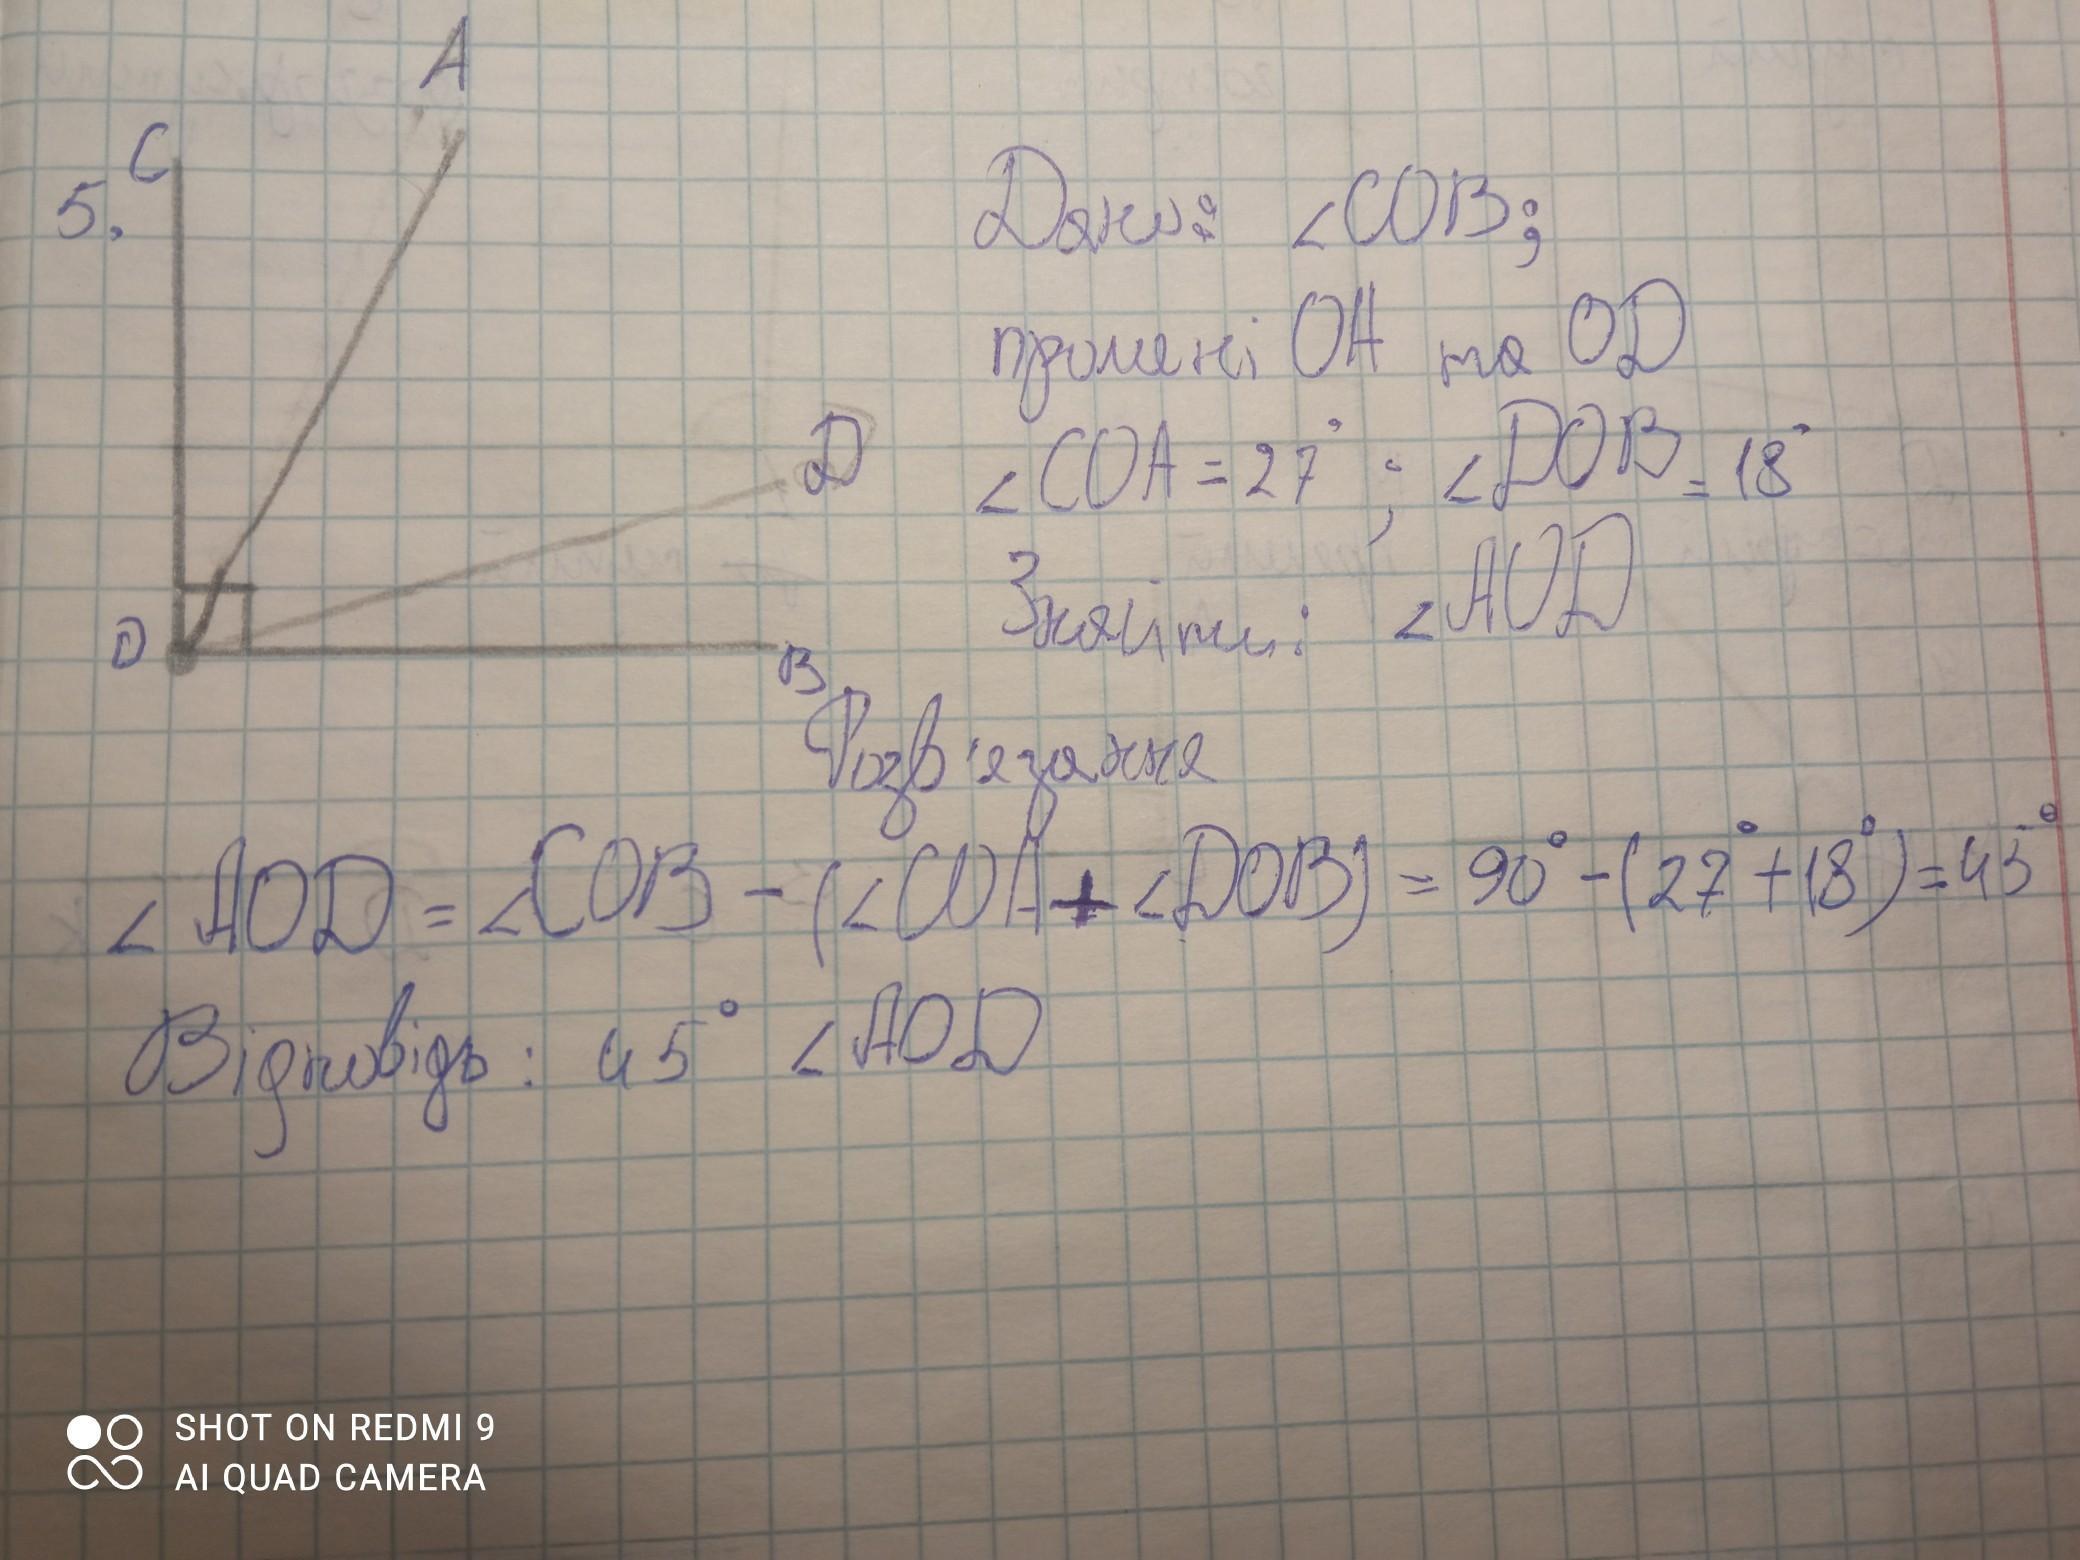 A
C
5.
D
O
B
Дано: ∠COB;
промені OA та OD
∠COA = 27° ; ∠DOB = 18°
Знайти: ∠AOD
Розв'язання
∠AOD = ∠COB - (∠COA + ∠DOB) = 90° - (27° + 18°) = 45°
Відповідь: 45° ∠AOD
SHOT ON REDMI 9
AI QUAD CAMERA